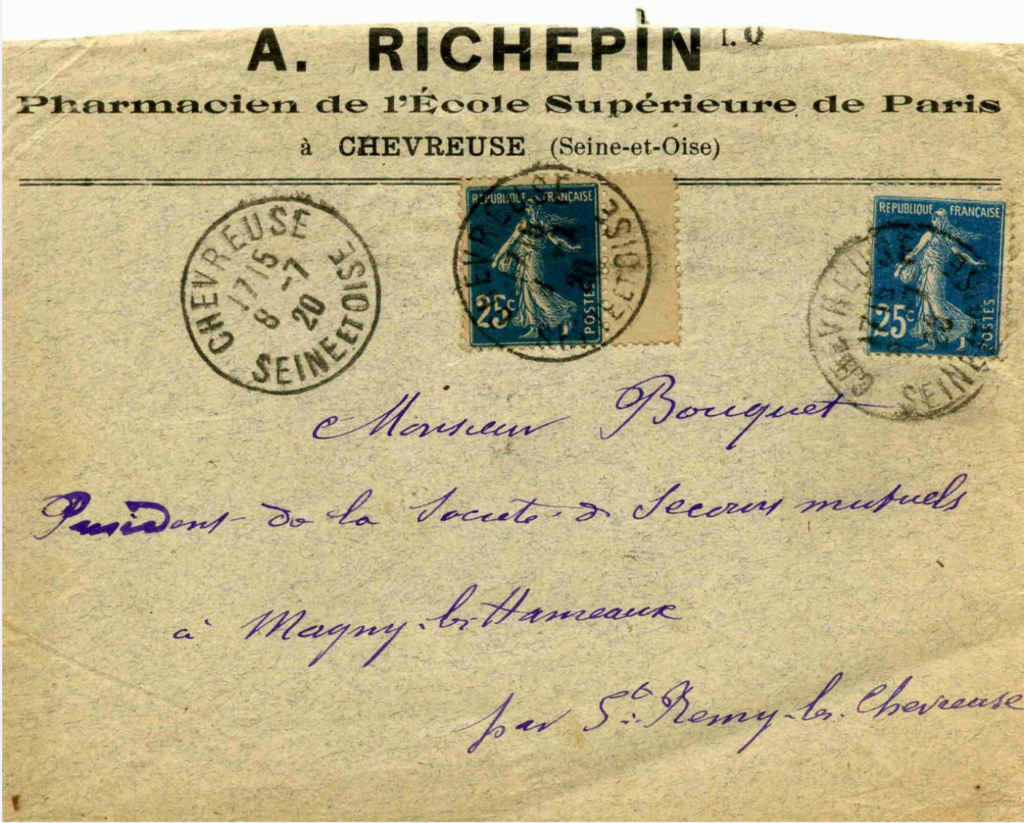 A. RICHEPIN I.
Pharmacien de l'École Supérieure de Paris
à CHEVREUSE (Seine-et-Oise)
CHEVREUSE
17 15
8 -7
20
SEINE ET OISE
REPUBLIQUE FRANÇAISE
25c
POSTES
REPUBLIQUE FRANÇAISE
25c
POSTES
CHEVREUSE
SEINE
Monsieur Bouquet
President de la Societe de Secours mutuels
à Magny-les-Hameaux
par St Remy-les-Chevreuse